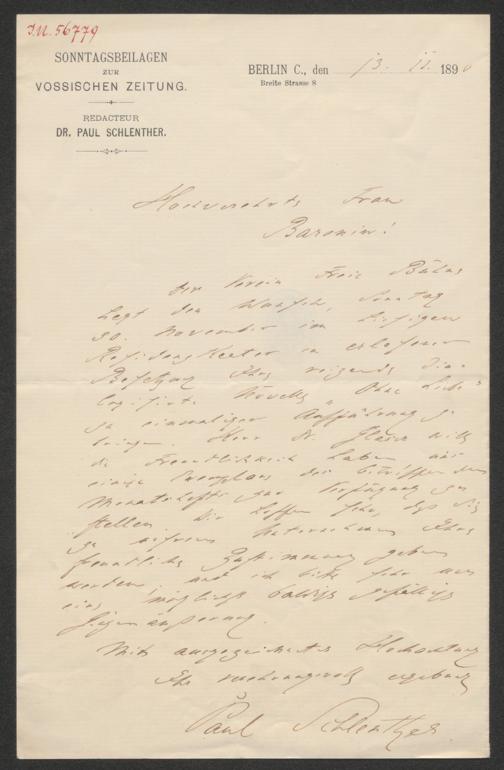 J.N. 56779
SONNTAGSBEILAGEN
ZUR
VOSSISCHEN ZEITUNG.
REDACTEUR
DR. PAUL SCHLENTHER.
BERLIN C., den 13. 11. 1890
Breite Strasse 8
Hochverehrte Frau
Baronin!
Der Verein Freie Bühne
hegt den Wunsch, Sonntag
30. November im hiesigen
Residenztheater in erlesener
Besetzung Ihre reizende dia-
logisirte Novelle „Ohne Liebe"
zu einmaliger Aufführung zu
bringen. Herr Dr. Glaser will
die Freundlichkeit haben uns
einige Exemplare des betreffenden
Monatshefts zur Verfügung zu
stellen. Wir hoffen sehr, daß Sie
zu unserem Unternehmen Ihre
freundliche Zustimmung geben
werden, und ich bitte sehr um
eine möglichst baldige gefällige
Gegenäußerung.
Mit ausgezeichneter Hochachtung
Ihr verehrungsvoll ergebener
Paul Schlenther